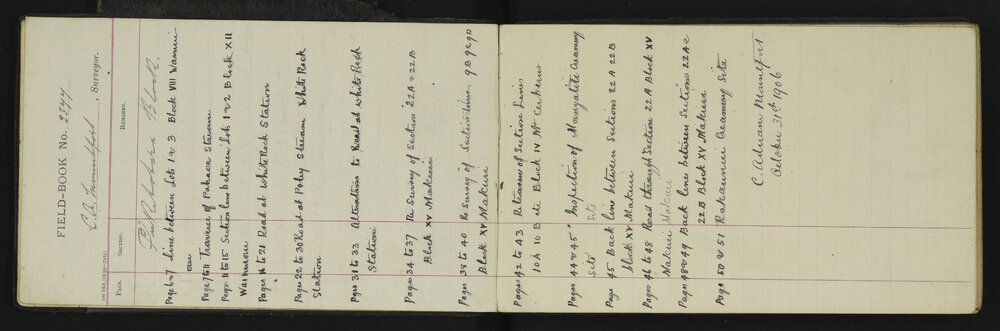 FIELD-BOOK No. 2344
C. A. Mountfort, Surveyor.
500 bks./12/99—7191]
PAGE. SECTION. REMARKS.
Block.
Page 6 & 7 Line between Lots 1 & 3 Block VIII
Page 7 to 11 Traverse of Pahaoa Stream
Pages 11 to 15 Section line between Lots 1 & 2 Block XII
Pages 16 to 21 Road at White Rock Station
Pages 22 to 30 Road at Poley Stream White Rock
Station
Pages 31 to 33 Alterations to Road at White Rock
Station
Pages 34 to 37 Re Survey of Section 22A & 22B
Block XV Makuri
Pages 39 to 40 Re Survey of Section lines 9B 9c 9D
Block XV Makuri
Pages 42 to 43 Retraverse of Section Lines
10A 10B etc Block IV Mt Cerberus
Pages 44 & 45 Inspection of Mangatete Creamery
Site
Page 45 Back line between Sections 22A 22B
block XV Makuri
Pages 46 to 48 Road through Section 22A Block XV
Makuri Makuri
Pages 48 & 49 Back lines between Sections 22A &
22B Block XV Makuri
Page 50 & 51 Rakaunui Creamery Site
C. Adnam Mountfort
October 31st 1906